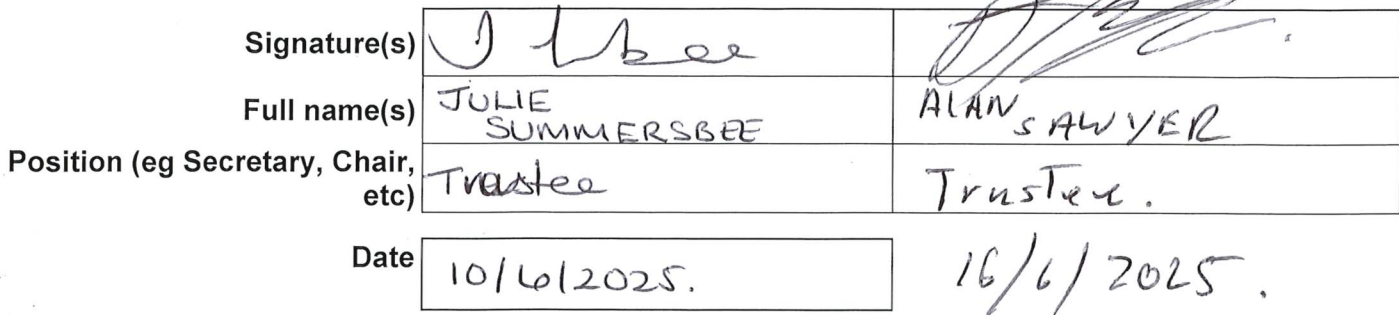 Signature(s)
Full name(s) JULIE SUMMERSBEE ALAN SAWYER
Position (eg Secretary, Chair, etc) Trustee Trustee.
Date 10/6/2025. 16/6/2025.